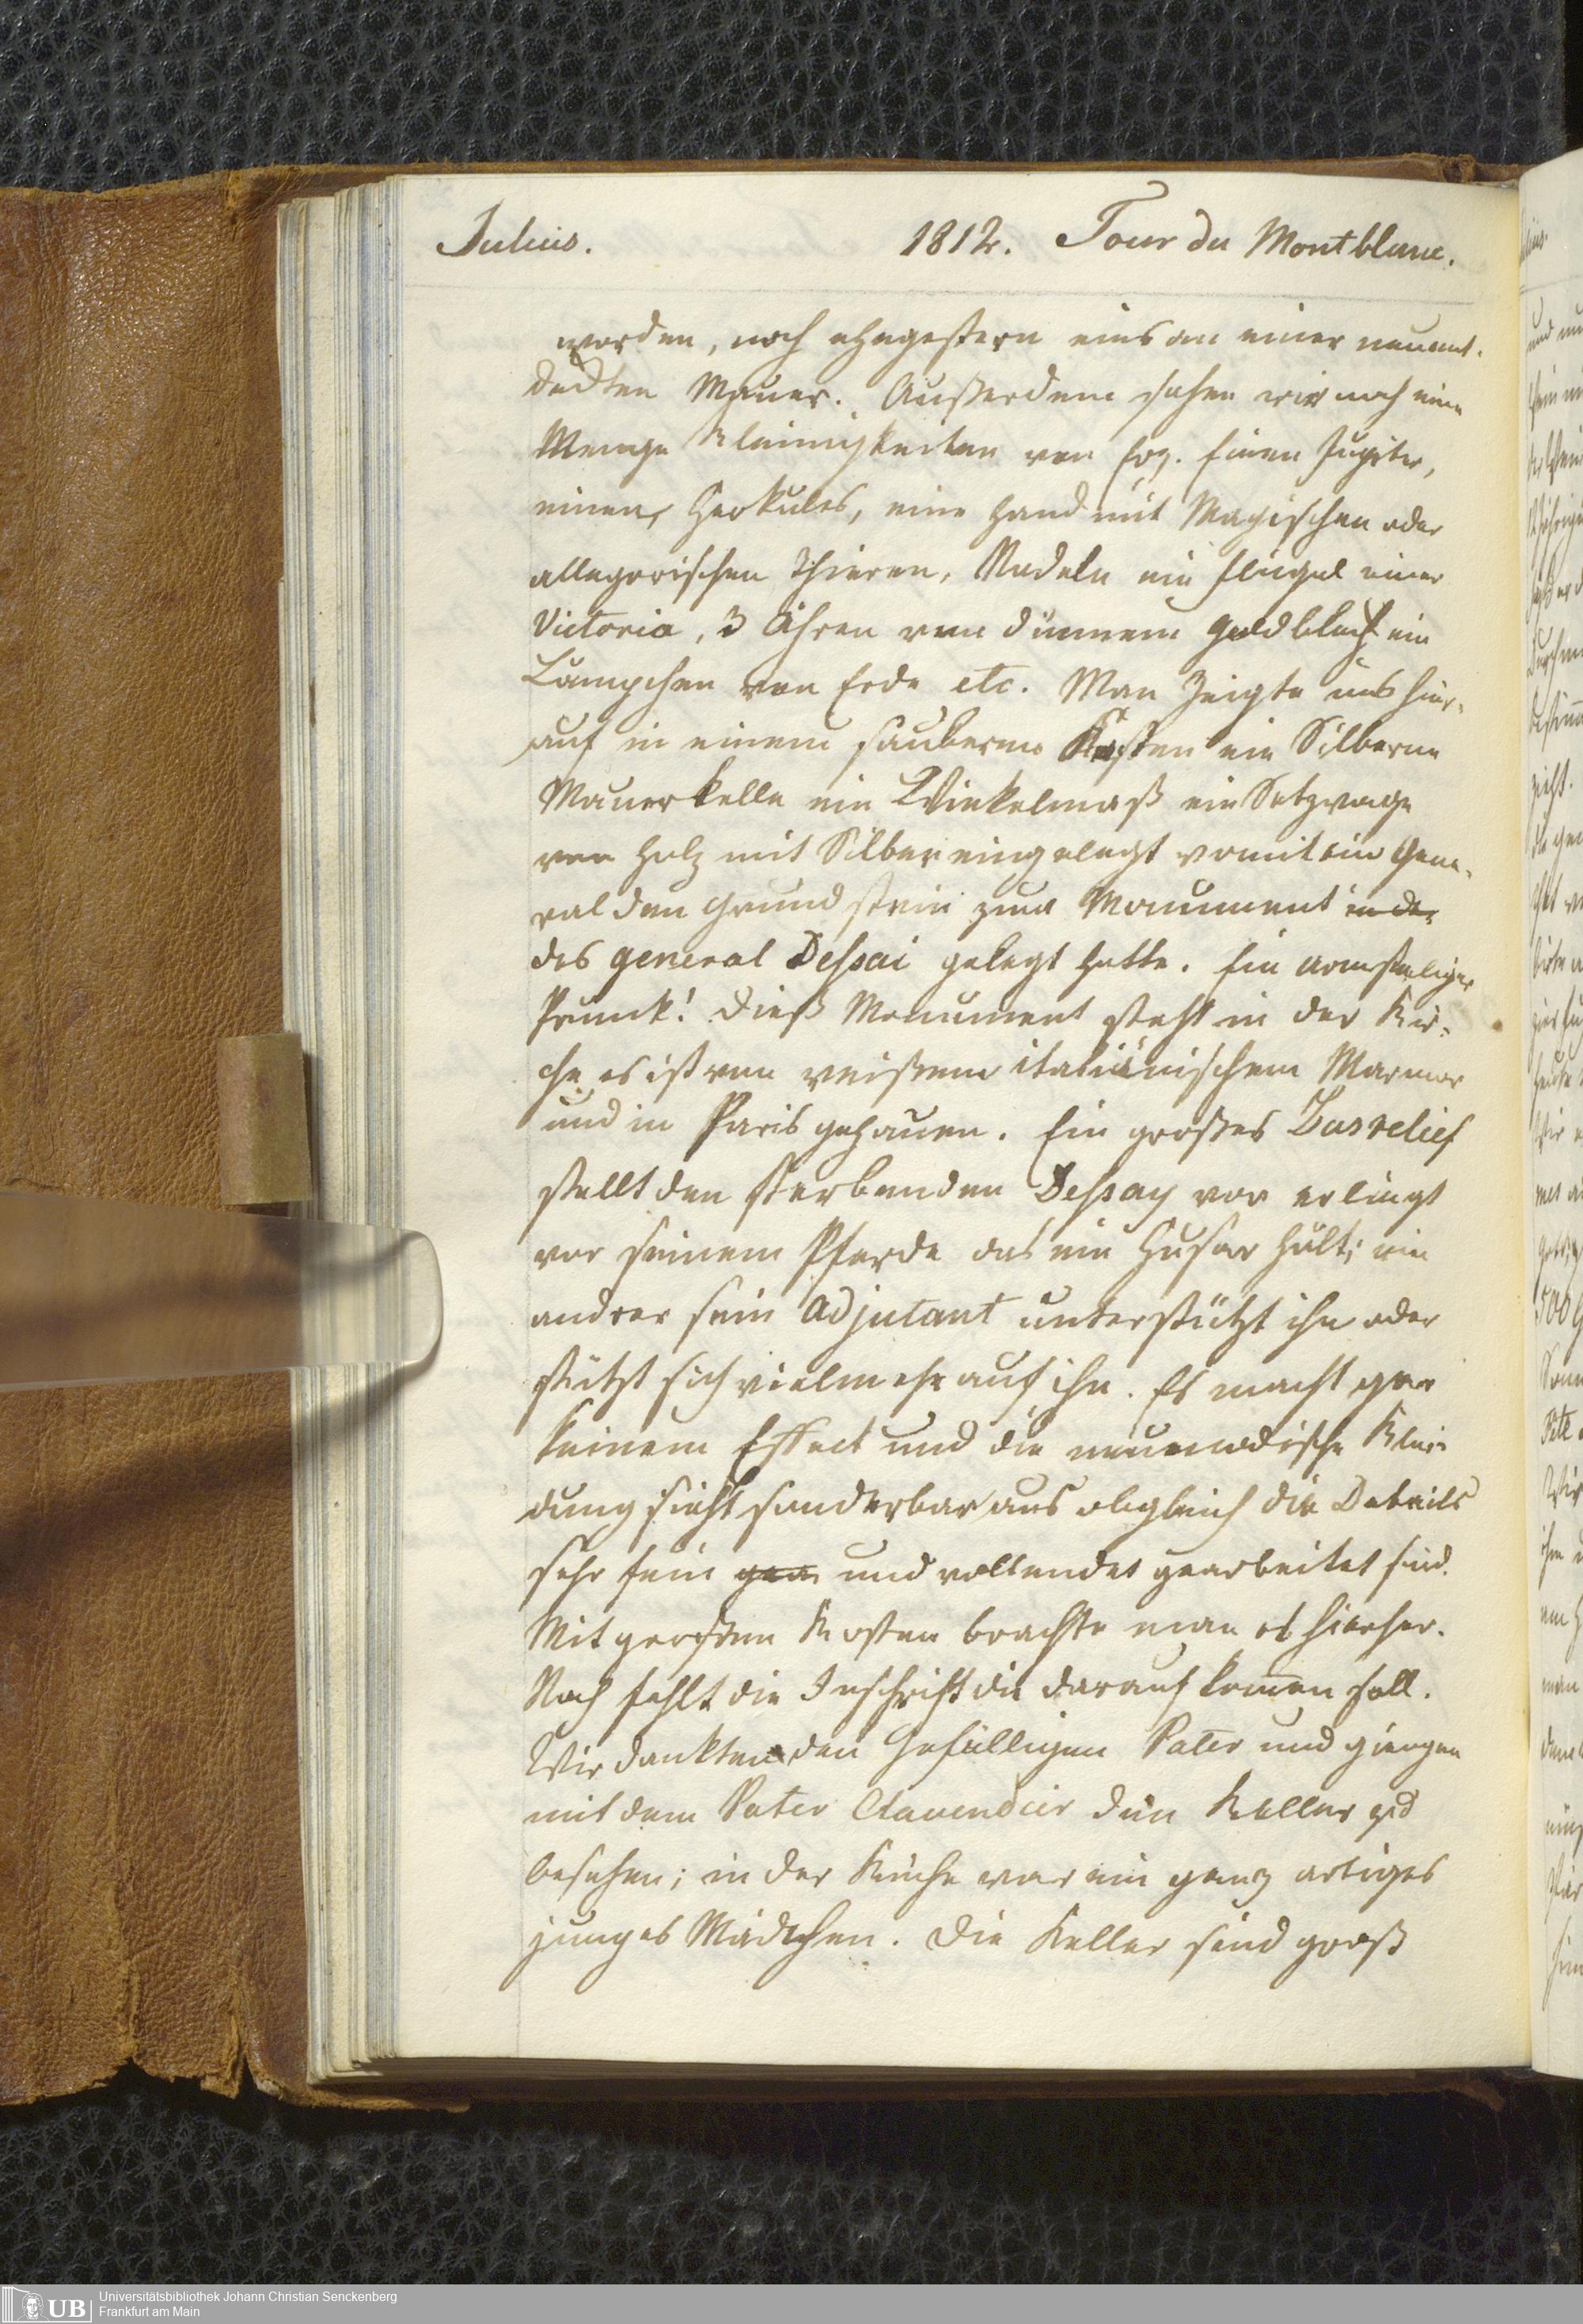 Julius. 1812. Tour du Montblanc.
worden, noch ehegestern eins an einer neuent-
deckten Mauer. Außerdem sahen wir noch eine
Menge Kleinigkeiten von Erz. Einen Jupiter,
einen Herkules, eine Hand mit Magischen oder
allegorischen Thieren, Nadeln ein Flügel einer
Victoria, 3 Ähren von dünnem Goldblech ein
Lämpchen von Erde etc. Man zeigte uns hier-
auf in einem saubern Kasten ein Silberne
Mauerkelle ein Winkelmaß ein Setzwage
von Holz mit Silber eingelegt womit ein Gene-
ral den Grundstein zum Monument in der
des general Dessai gelegt hatte. Ein armseliger
Prunk! Dieß Monument steht in der Kir-
che es ist von weißem italiänischem Marmor
und in Paris gehauen. Ein großes Basrelief
stellt den sterbenden Dessay vor er liegt
vor seinem Pferde das ein Husar hält; ein
andrer sein Adjutant unterstützt ihn oder
stützt sich vielmehr auf ihn. Es macht gar
keinem Effect und die neumodische Klei-
dung sieht sonderbar aus obgleich die Details
sehr fein gea und vollendet gearbeitet sind.
Mit großen Kosten brachte man es hierher.
Noch fehlt die Inschrift die darauf kommen soll.
Wir dankten den Gefälligen Pater und giengen
mit dem Pater Clavendier den Keller zu
besehen; in der Küche war ein ganz artiges
junges Mädchen. Die Keller sind groß
UB
Universitätsbibliothek Johann Christian Senckenberg
Frankfurt am Main